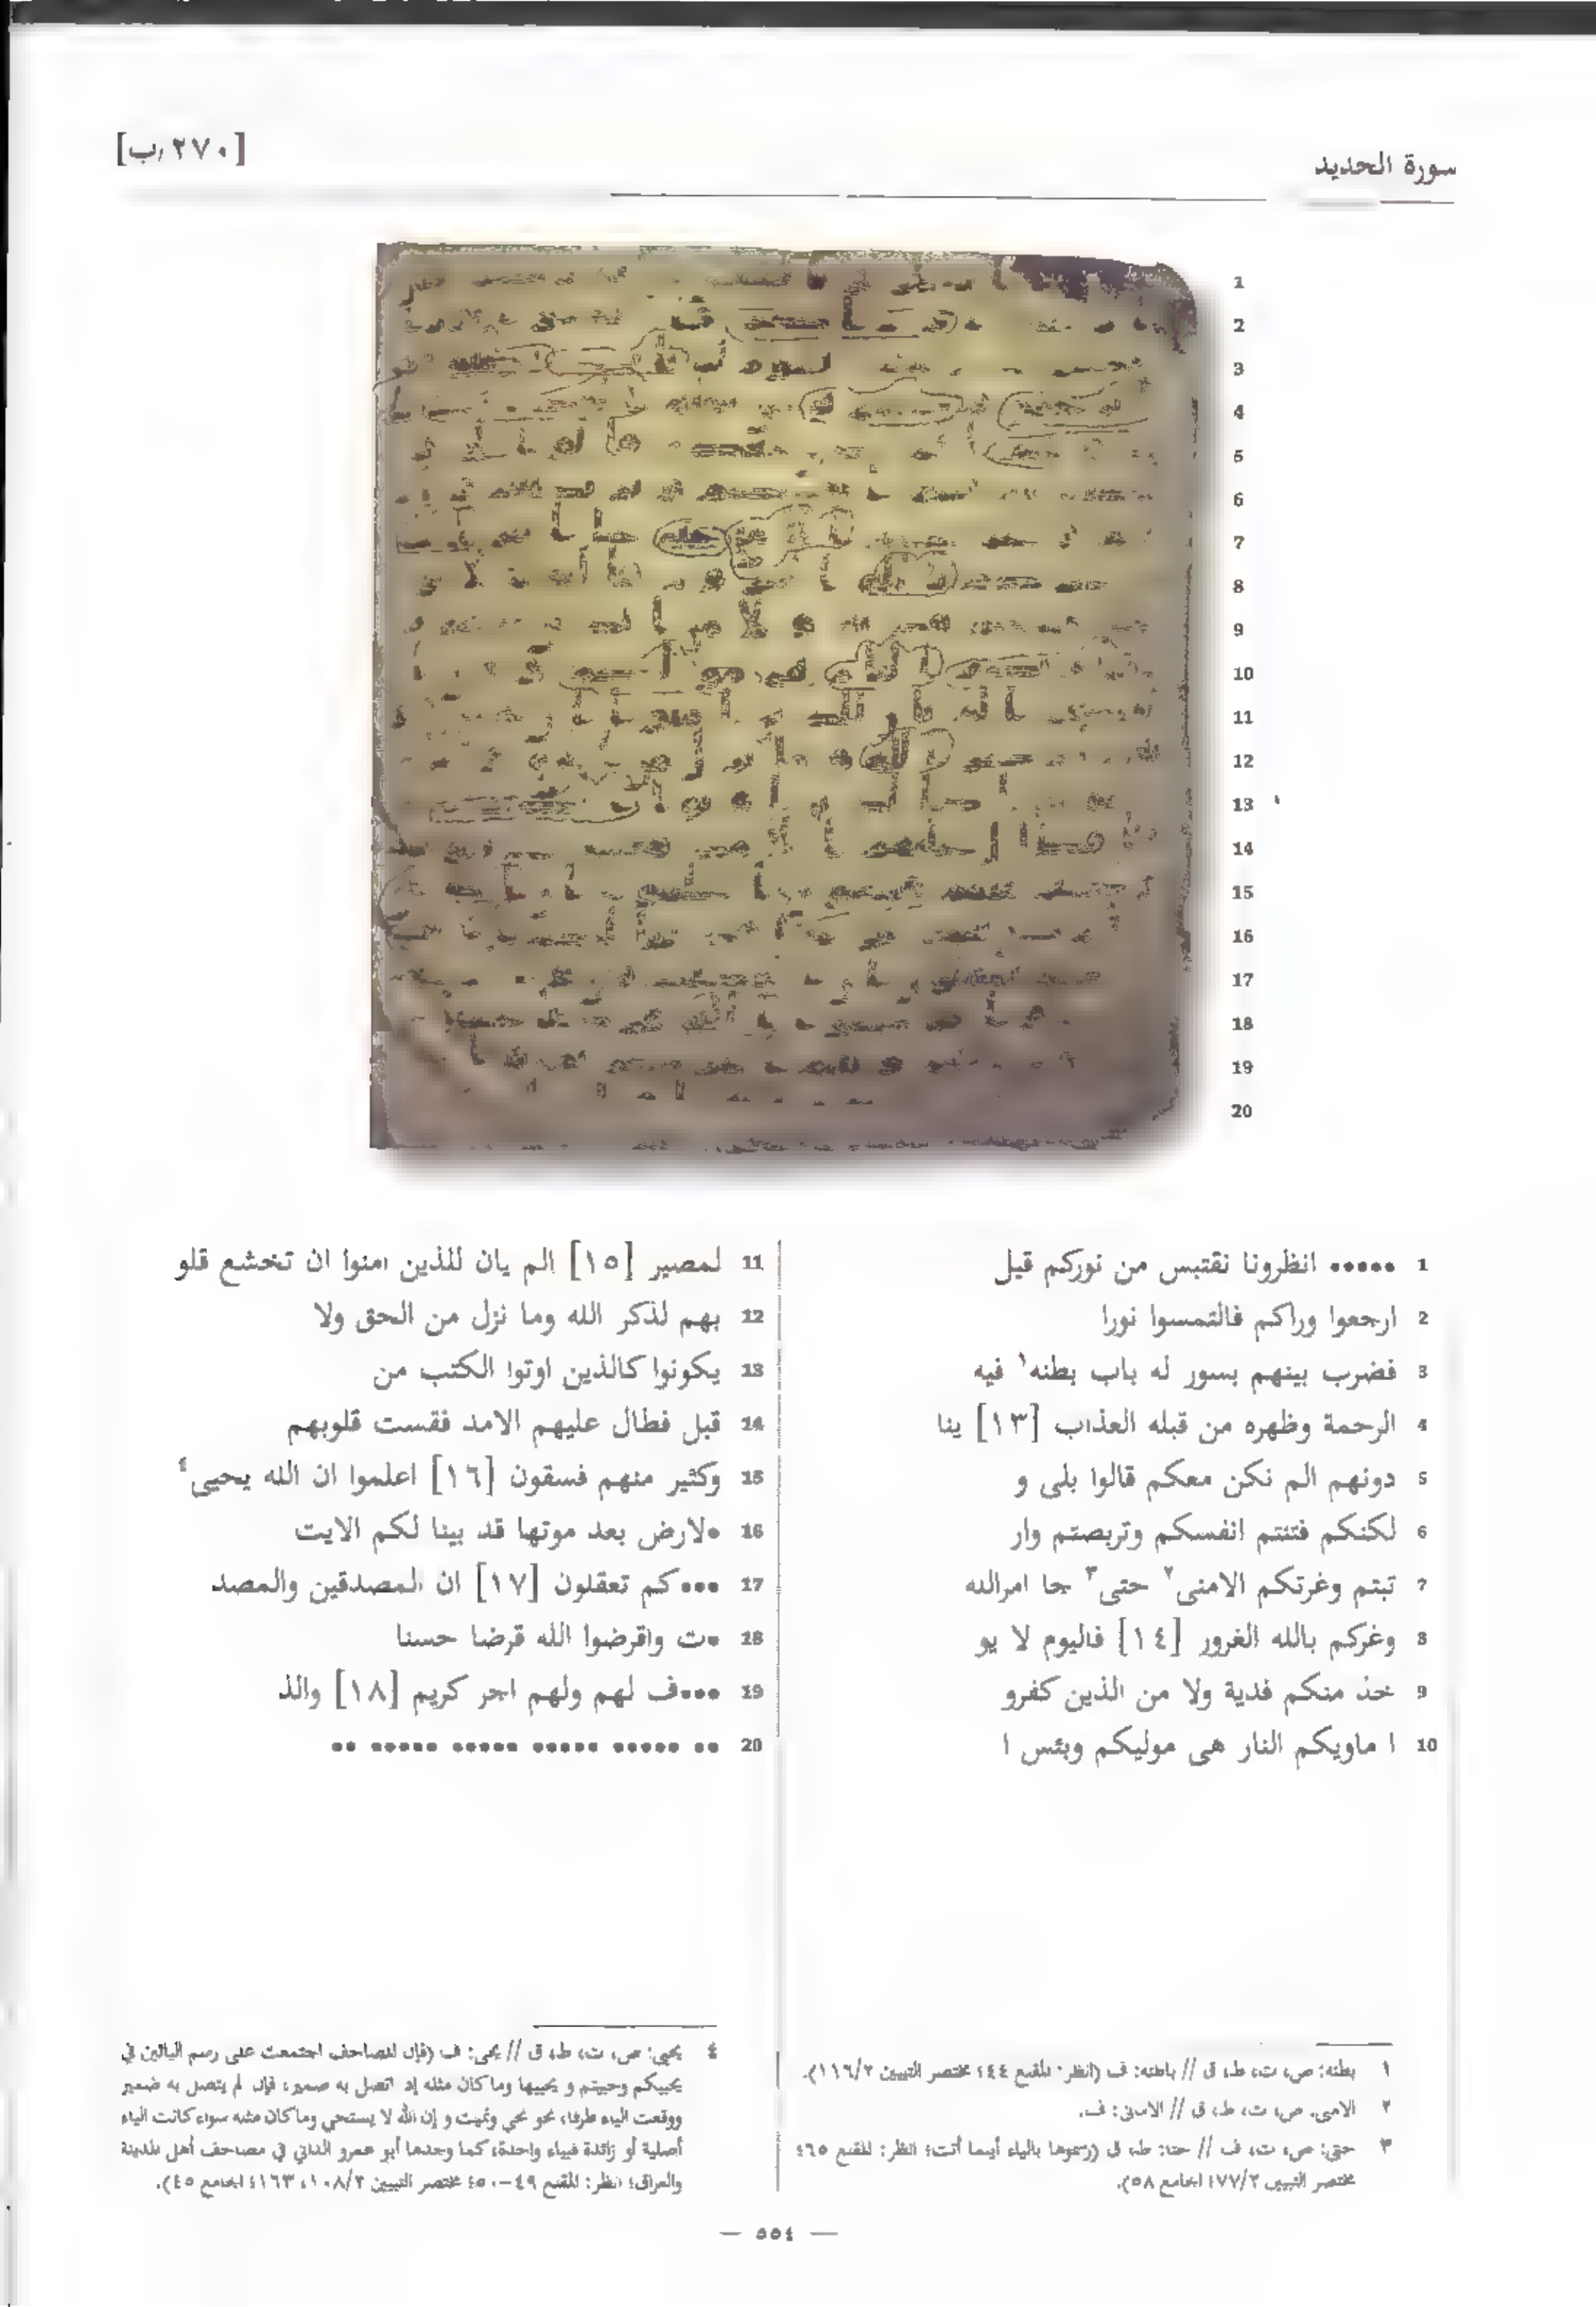 سورة الحديد
[٢٧٠/ب]
1 ••••• انظرونا نقتبس من نوركم قيل
2 ارجعوا وراكم فالتمسوا نورا
3 فضرب بينهم بسور له باب بطنه١ فيه
4 الرحمة وظهره من قبله العذاب [١٣] ينا
5 دونهم الم نكن معكم قالوا بلى و
6 لكنكم فتنتم انفسكم وتربصتم وار
7 تبتم وغرتكم الامنى٢ حتى٣ جا امرالله
8 وغركم بالله الغرور [١٤] فاليوم لا يو
9 خذ منكم فدية ولا من الذين كفرو
10 ا ماويكم النار هى موليكم وبئس ا
11 لمصير [١٥] الم يان للذين امنوا ان تخشع قلو
12 بهم لذكر الله وما نزل من الحق ولا
13 يكونوا كالذين اوتوا الكتب من
14 قبل فطال عليهم الامد فقست قلوبهم
15 وكثير منهم فسقون [١٦] اعلموا ان الله يحيى٤
16 •لارض بعد موتها قد بينا لكم الايت
17 •••كم تعقلون [١٧] ان المصدقين والمصد
18 •ت واقرضوا الله قرضا حسنا
19 •••ف لهم ولهم اجر كريم [١٨] والذ
20 •• ••••• ••••• ••••• ••••• ••
١ بطنه: ص، ت، ط، ق // باطنه: ف (انظر: المقنع ٤٤؛ مختصر التبيين ١١٦/٢).
٢ الامنى: ص، ت، ط، ق // الامانى: ف.
٣ حتى: ص، ت، ف // حتا: ط، ق (رسموها بالياء أينما أتت؛ انظر: المقنع ٦٥؛
مختصر التبيين ٧٧/٢؛ الجامع ٥٨).
٤ يحيى: ص، ت، ط، ق // يحى: ف (فإن المصاحف اجتمعت على رسم اليائين في
يحييكم وحييتم و يحييها وما كان مثله إذ اتصل به ضمير، فإن لم يتصل به ضمير
ووقعت الياء طرفا، نحو نحي ونميت و إن الله لا يستحي وما كان مثله سواء كانت الياء
أصلية أو زائدة فبياء واحدة، كما وجدها أبو عمرو الداني في مصاحف أهل المدينة
والعراق؛ انظر: المقنع ٤٩-٥٠؛ مختصر التبيين ١٠٨/٢، ١٦٣؛ الجامع ٤٥).
— ٥٥٤ —